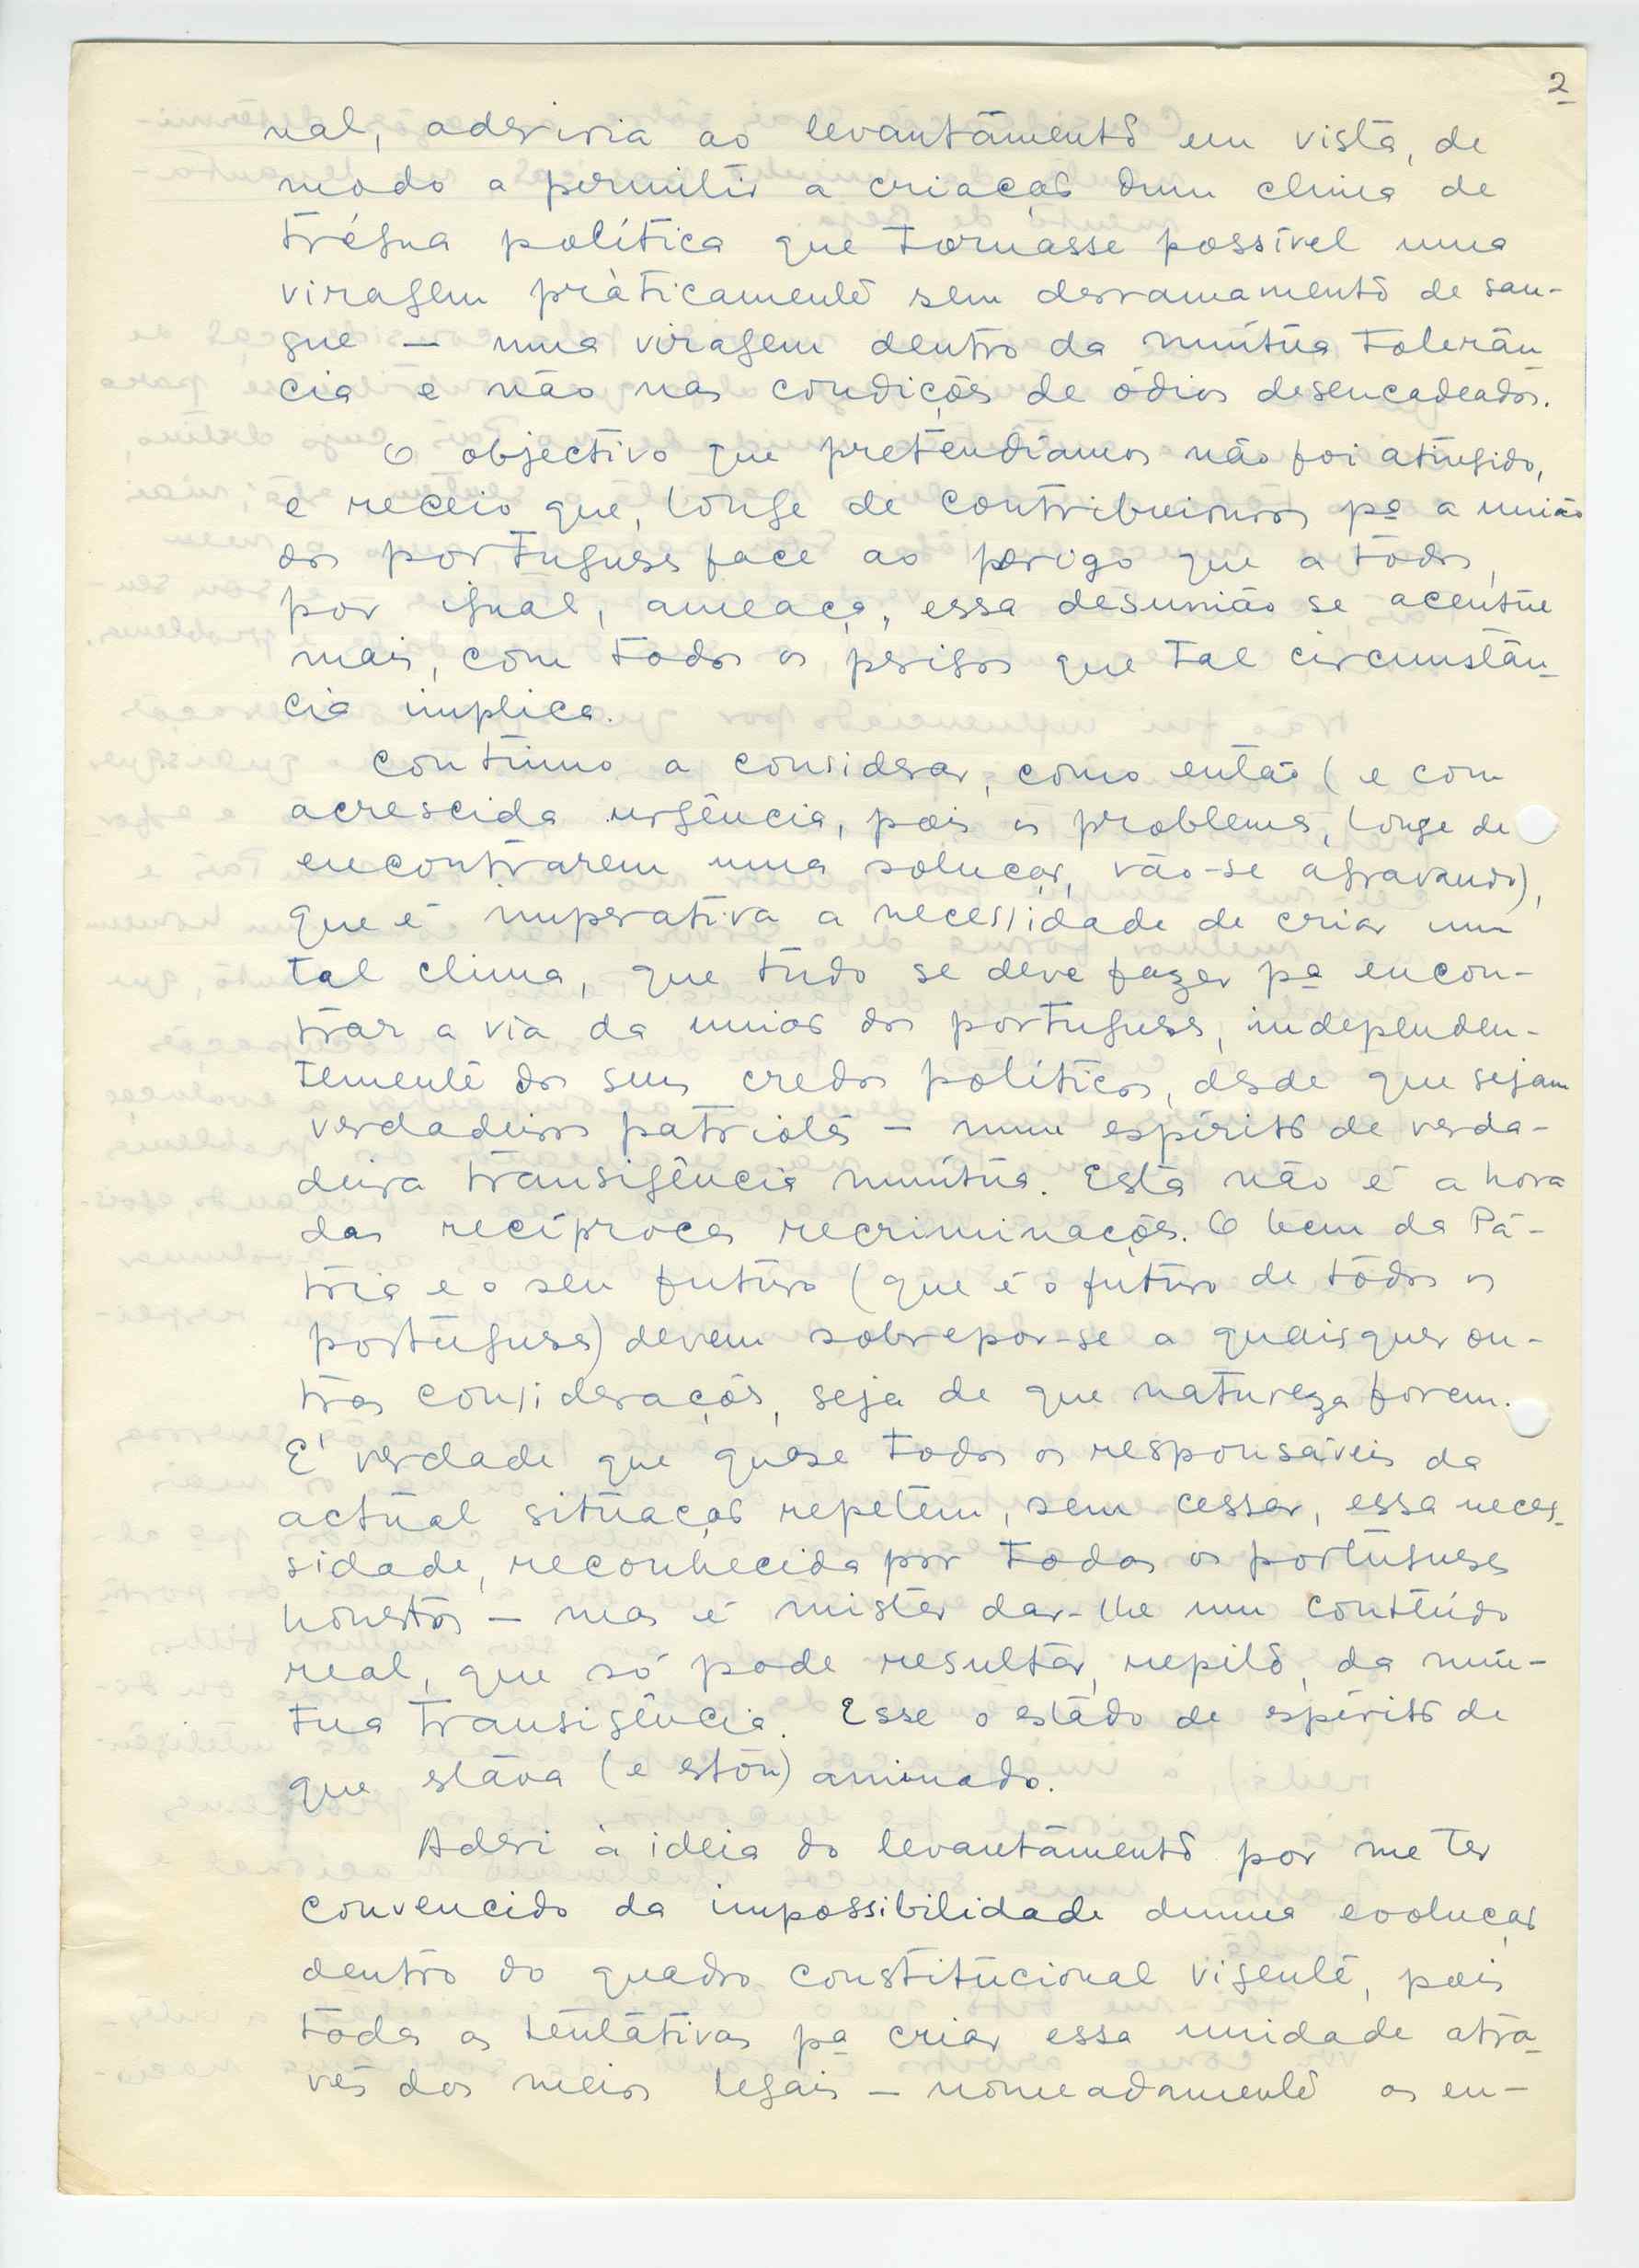 2
nal, aderiria ao levantamento em vista, de
modo a permitir a criação dum clima de
trégua política que tornasse possível uma
viragem pràticamente sem derramamento de san-
gue — uma viragem dentro da mútua tolerân
cia e não nas condições de ódios desencadeados.
O objectivo que pretendíamos não foi atingido,
e receio que, longe de contribuirmos pª a união
dos portugueses face ao perigo que a todos,
por igual, ameaça, essa desunião se acentue
mais, com todos os perigos que tal circunstân-
cia implica.
Continuo a considerar, como então (e com
acrescida urgência, pois os problemas, longe de
encontrarem uma solução, vão-se agravando),
que é imperativa a necessidade de criar um
tal clima, que tudo se deve fazer pª encon-
trar a via da união dos portugueses, independen-
temente dos seus credos políticos, desde que sejam
verdadeiros patriotas — num espírito de verda-
deira transigência mútua. Esta não é a hora
das recíprocas recriminações. O bem da Pá-
tria e o seu futuro (que é o futuro de todos os
portugueses) devem sobrepor-se a quaisquer ou-
tras considerações, seja de que natureza forem.
É verdade que quase todos os responsáveis da
actual situação repetem, sem cessar, essa neces-
sidade, reconhecida por todos os portugueses
honestos — mas é mister dar-lhe um conteúdo
real, que só pode resultar, repito, da mú-
tua transigência. Esse o estado de espírito de
que estava (e estou) animado.
Aderi à ideia do levantamento por me ter
convencido da impossibilidade duma evolução
dentro do quadro constitucional vigente, pois
todas as tentativas pª criar essa unidade atra-
vés dos meios legais — nomeadamente as en-